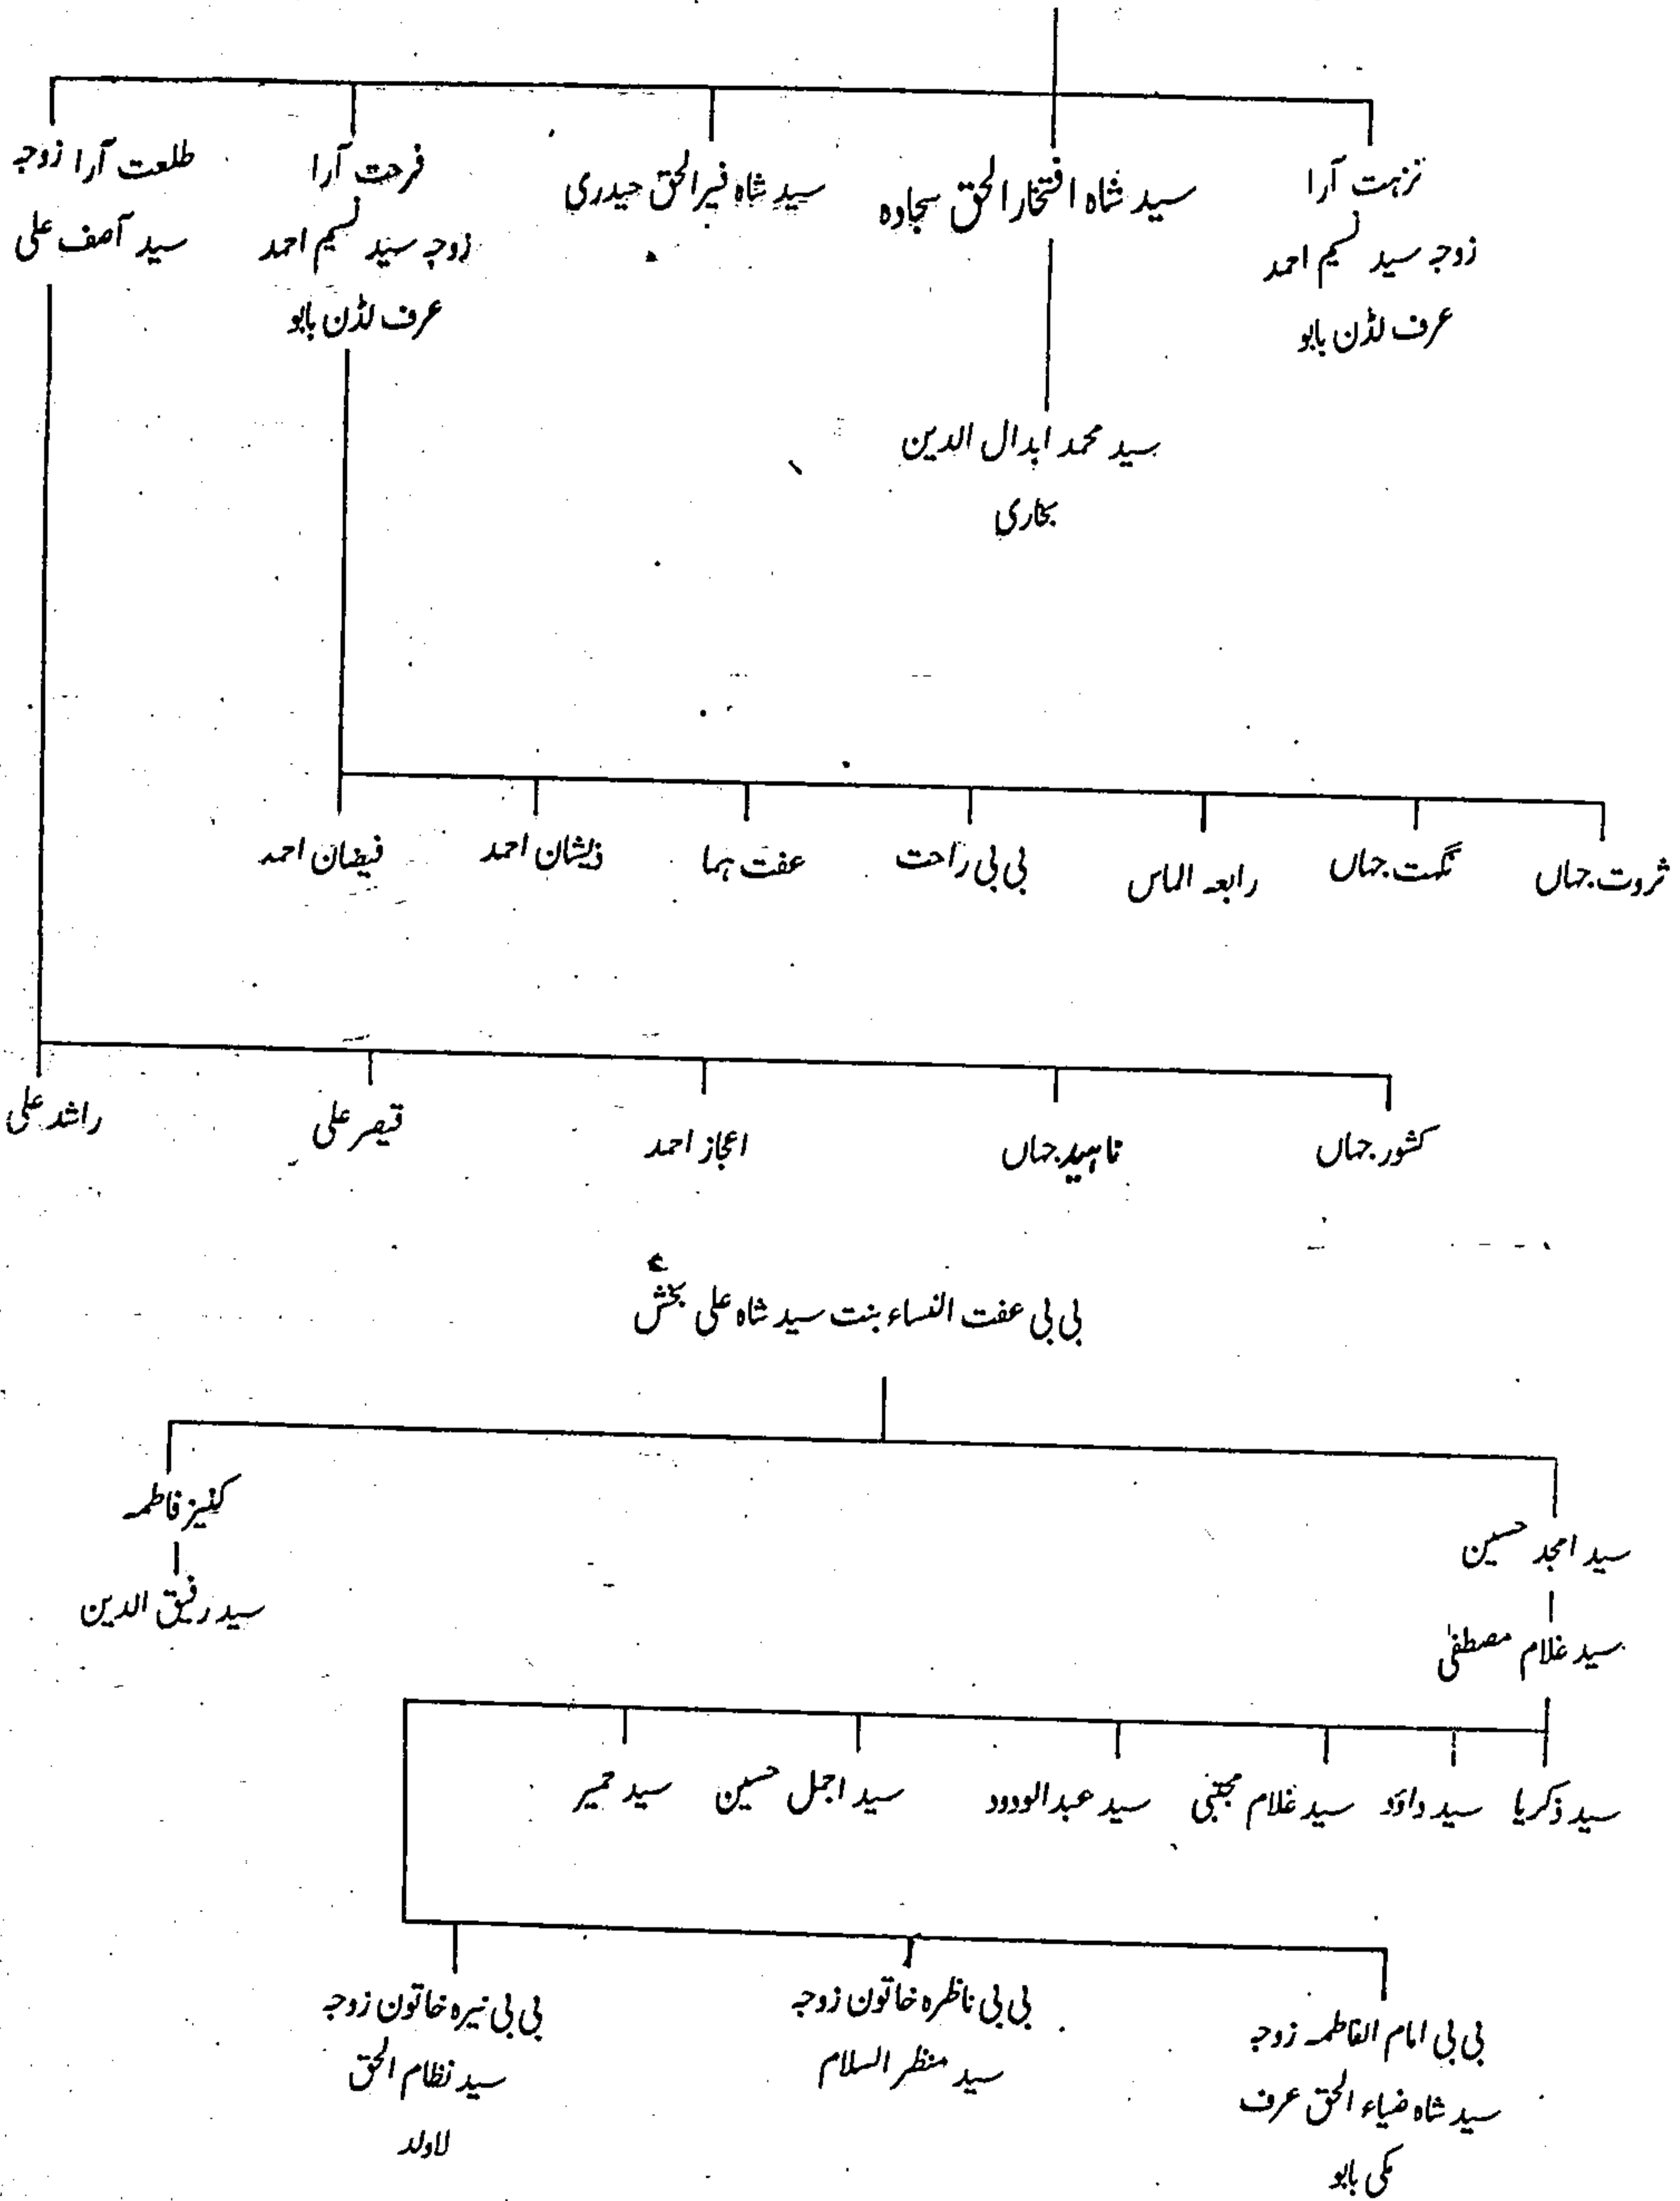 نزہت آرا
زوجہ سید نسیم احمد
عرف لڈن بابو
سید شاہ افتخار الحق سجادہ
سید محمد ابدال الدین
بخاری
سید شاہ نیر الحق حیدری
فرحت آرا
زوجہ سید نسیم احمد
عرف لڈن بابو
طلعت آرا زوجہ
سید آصف علی
ثروت جہاں
نگہت جہاں
رابعہ الماس
بی بی راحت
عفت ہما
ذیشان احمد
فیضان احمد
کشور جہاں
ناہید جہاں
اعجاز احمد
قیصر علی
راشد علی
بی بی عفت النساء بنت سید شاہ علی بخش
سید امجد حسین
سید غلام مصطفیٰ
کنیز فاطمہ
سید رفیق الدین
سید ذکریا
سید داؤد
سید غلام مجتبیٰ
سید عبدالودود
سید اجمل حسین
سید حمیر
بی بی امام الفاطمہ زوجہ
سید شاہ ضیاء الحق عرف
مکی بابو
بی بی ناظرہ خاتون زوجہ
سید منظر السلام
بی بی نیرہ خاتون زوجہ
سید نظام الحق
لاولد